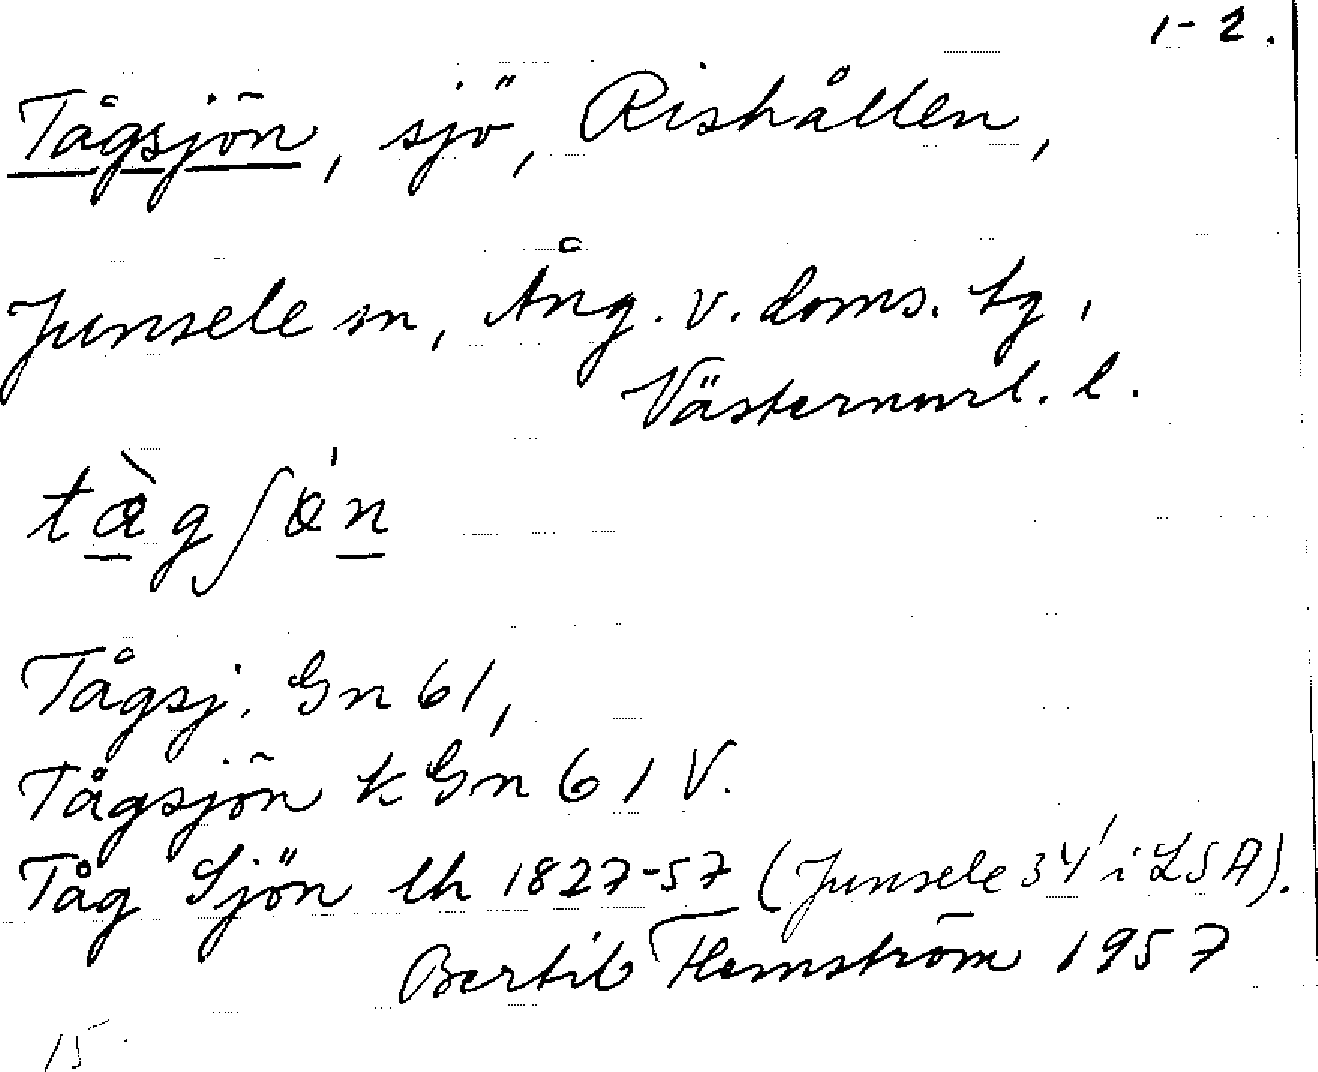 1-2.
Tågsjön, sjö, Rishållen,
Junsele sn, Ång. v. doms. tg,
Västernorrl. l.
tàgʃɵ́n
Tågsj. Gn 61,
Tågsjön k Gn 61 V.
Tåg Sjön lh 1827-57 (Junsele 34' i LSA).
Bertil Flemström 1957
15